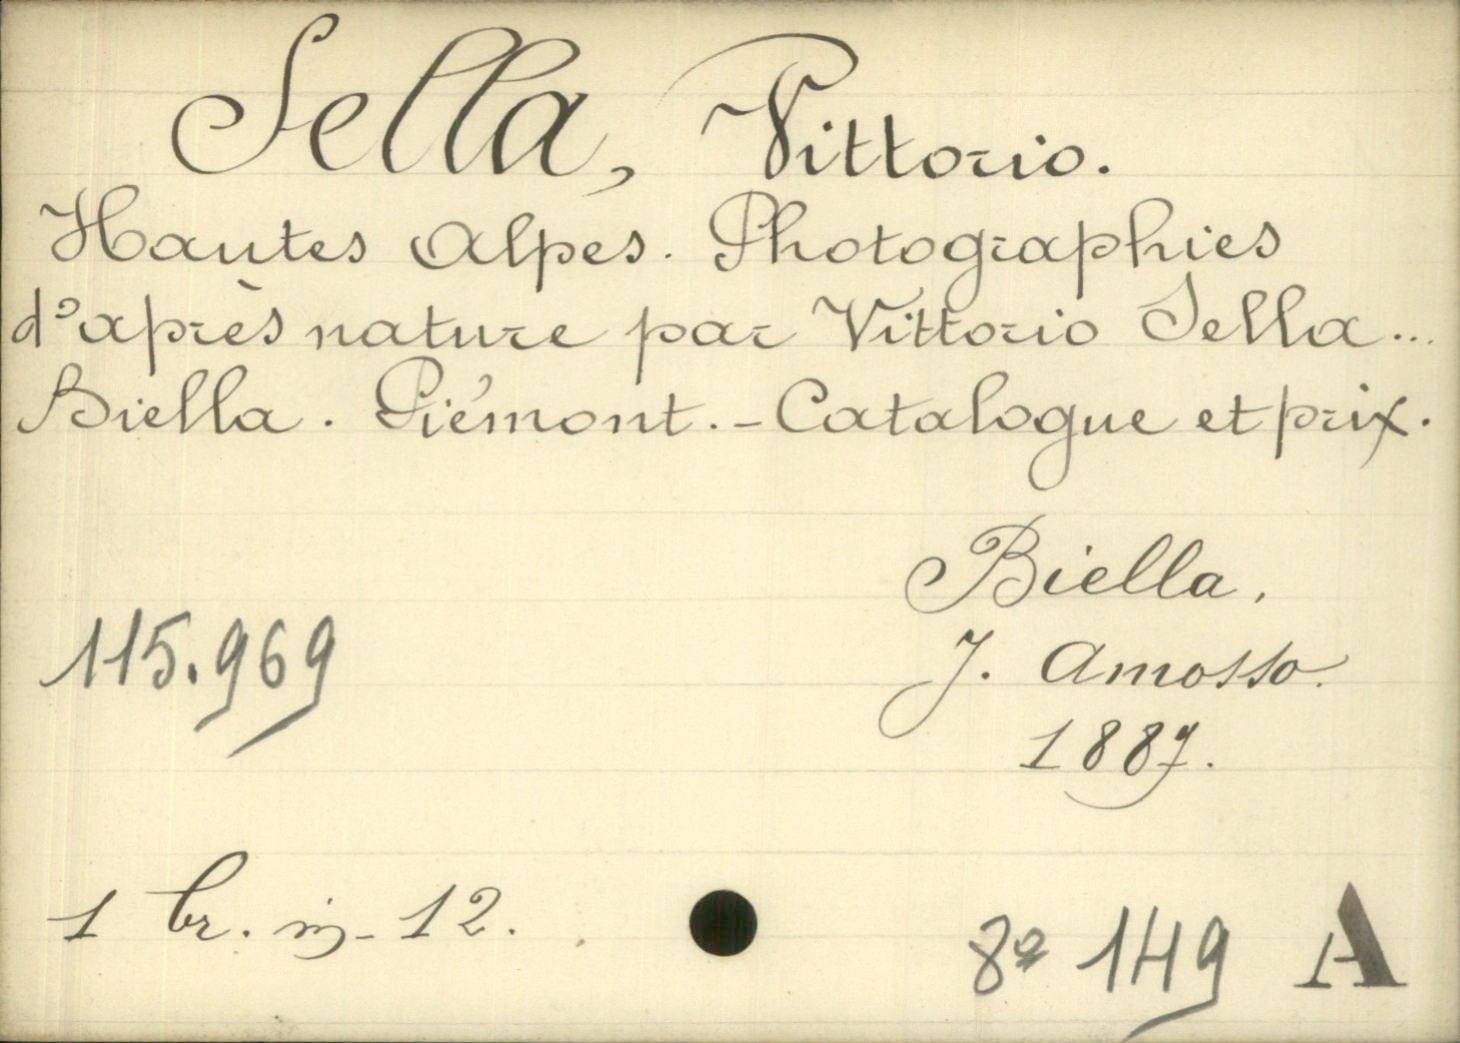 Sella, Vittorio.
Hautes Alpes. Photographies
d'après nature par Vittorio Sella...
Biella. Piémont. - Catalogue et prix.
Biella,
J. Amosso.
1887.
115.969
1 br. in-12.
8º 149 A